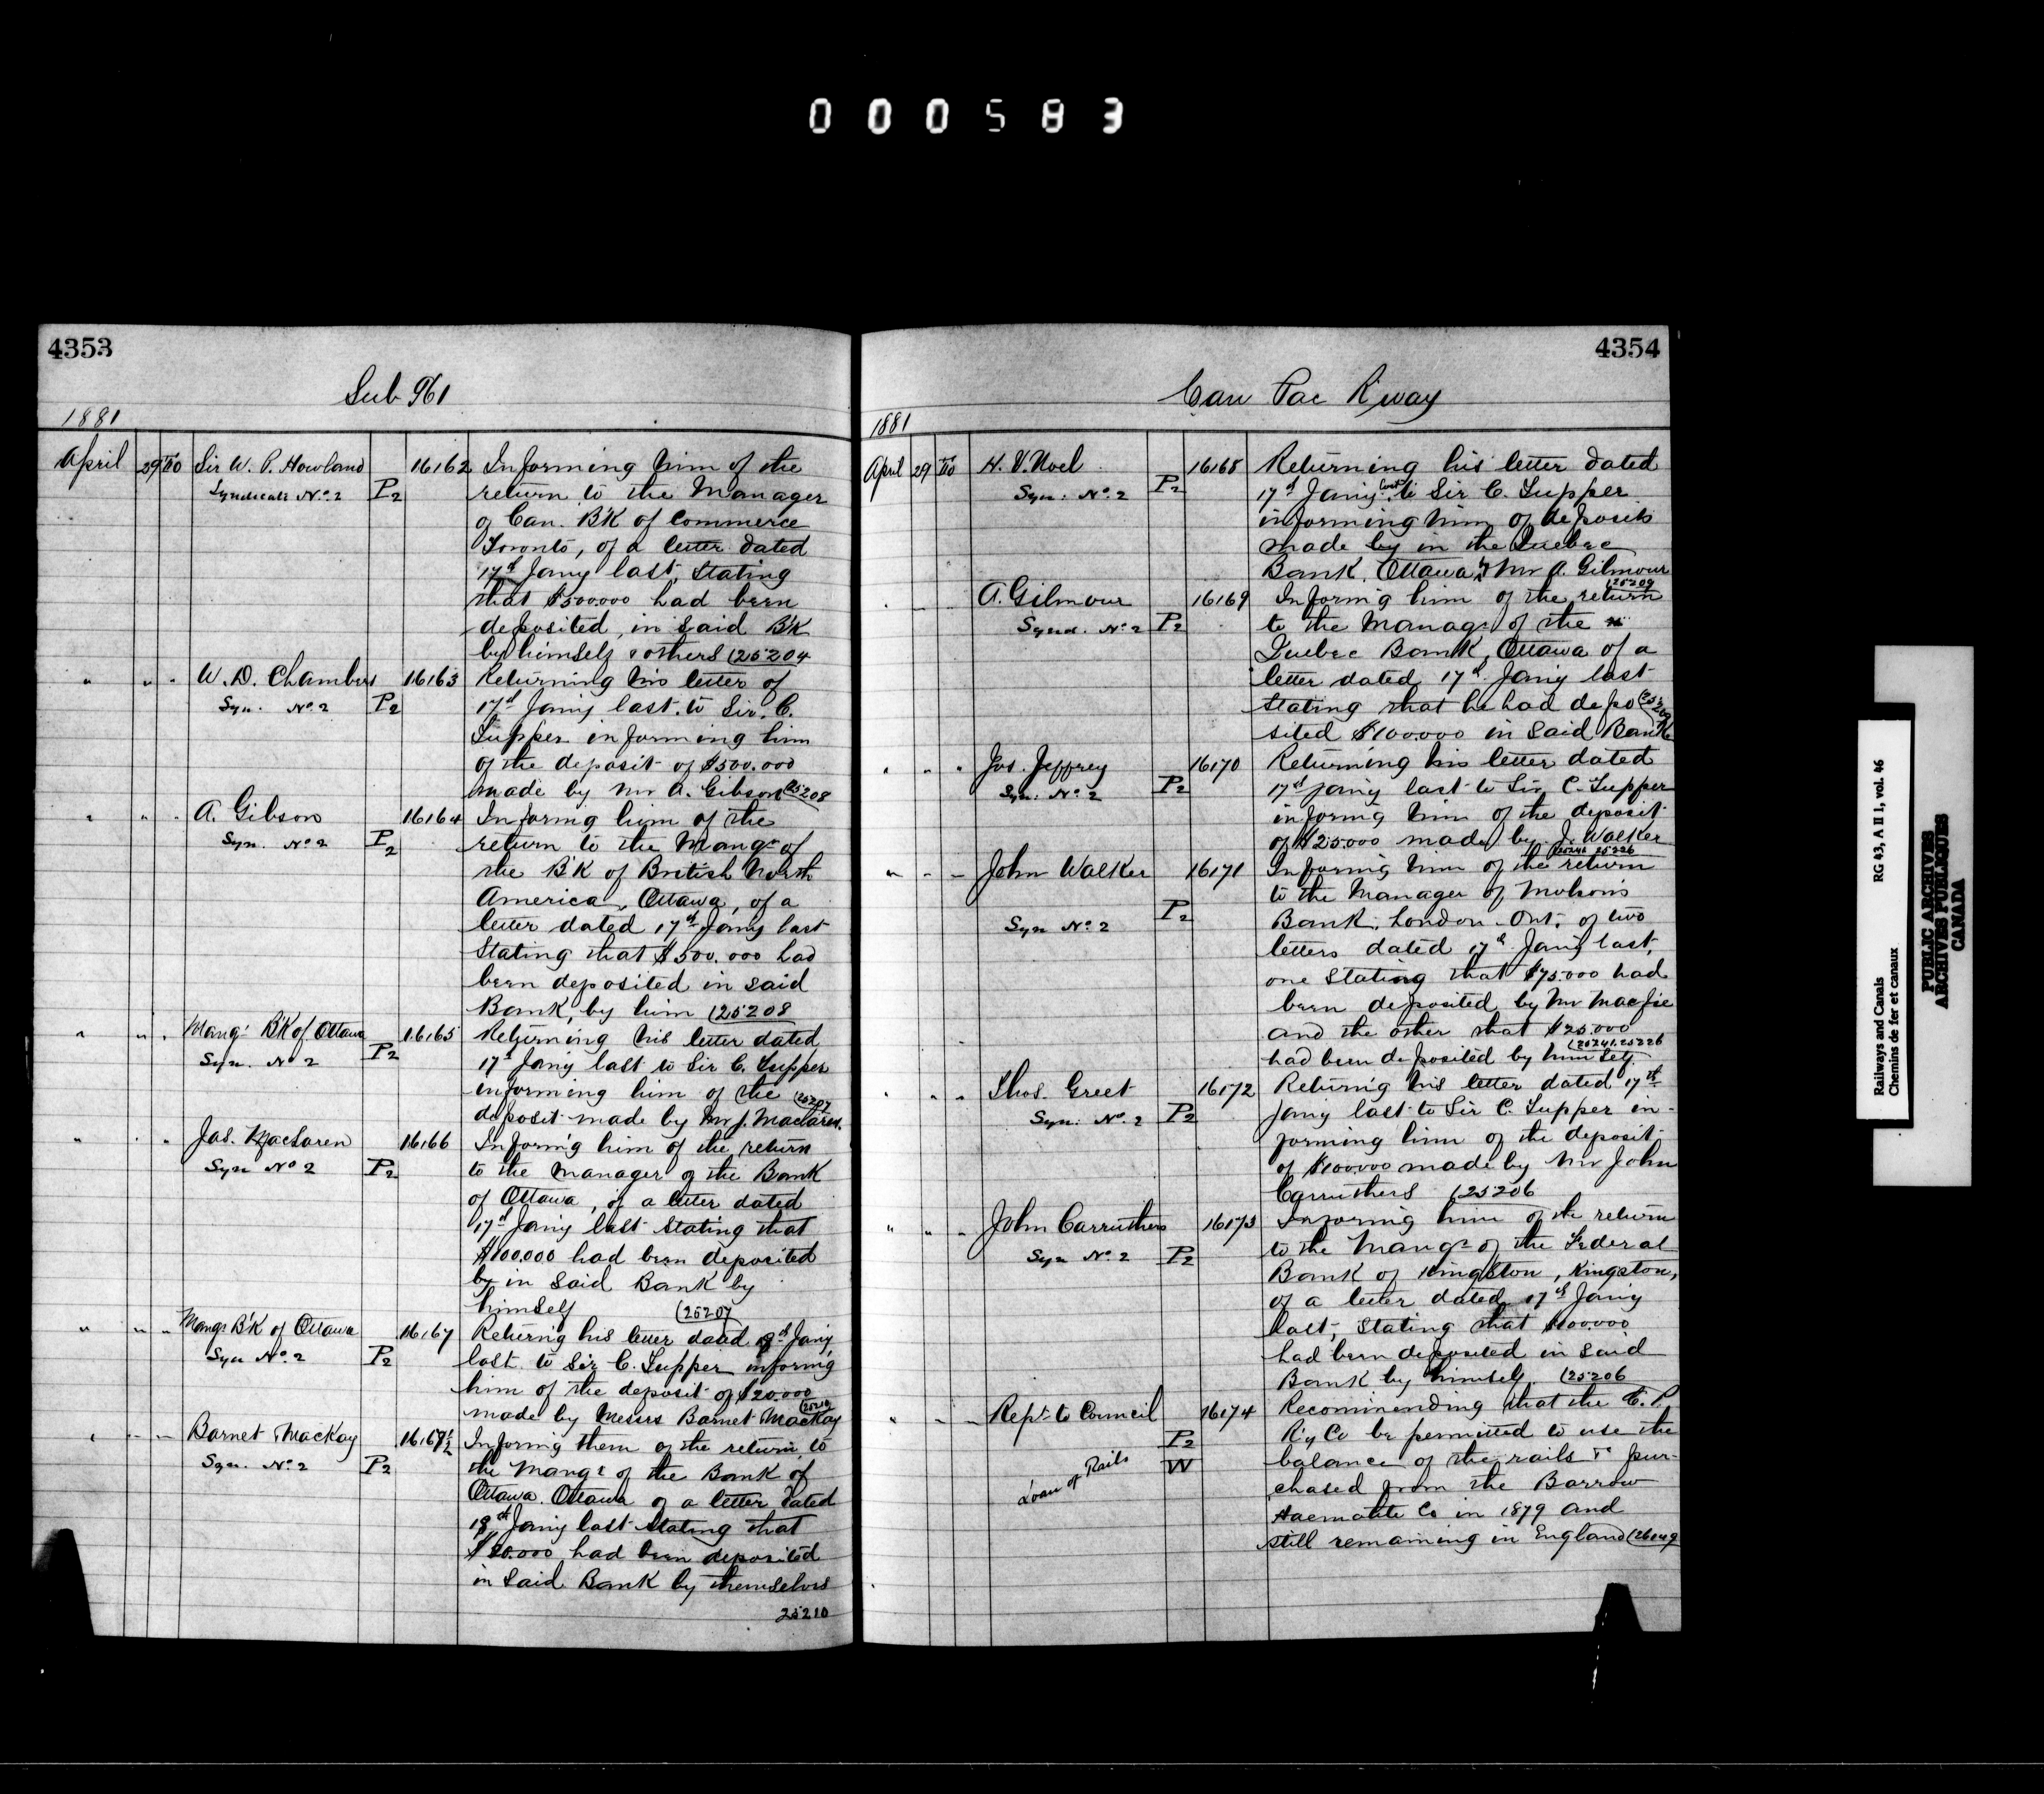 000583
4353
Sub 961
1881
April 29 To Sir W. P. Howland 16162 Informing him of the
Syndicate No. 2 P2 return to the Manager
of Can. B'K of Commerce
Toronto, of a letter dated
17th Jany last, Stating
that $500.000 had been
deposited, in said B'K
by himself & others (25204
" " " W. D. Chambers 16163 Returning his letter of
Syn. No. 2 P2 17th Jany last to Sir. C.
Tupper informing him
of the deposit of $500.000
made by Mr A. Gibson (25208
" " " A. Gibson 16164 Informg him of the
Syn. No. 2 P2 return to the Mangr of
the B'K of British North
America, Ottawa, of a
letter dated 17th Jany last
Stating that $500.000 had
been deposited in said
Bank, by him (25208
" " " Mangr B'K of Ottawa 16165 Returning his letter dated
Syn. No 2 P2 17th Jany last to Sir C. Tupper
informing him of the (25207
deposit made by Mr J. Maclaren.
" " " Jas. MacLaren 16166 Informg him of the return
Syn No 2 P2 to the Manager of the Bank
of Ottawa, of a letter dated
17th Jany last Stating that
$100.000 had been deposited
by in said Bank by
himself (25207
" " " Mangr B'K of Ottawa 16167 Returng his letter dated 18th Jany
Syn No. 2 P2 last to Sir C. Tupper informg
him of the deposit of $20.000
made by Messrs Barnet Mackay (25210
" " " Barnet MacKay 16167½ Informg them of the return to
Syn. No. 2 P2 the Mangr of the Bank of
Ottawa. Ottawa of a letter dated
18th Jany last Stating that
$20.000 had been deposited
in said Bank by themselves
25210
4354
Can Pac R'way
1881
April 29 To H. V. Noel 16168 Returning his letter dated
Syn. No. 2 P2 17th Jany last to Sir C. Tupper
informing him of deposits
made by in the Quebec
Bank, Ottawa by Mr A. Gilmour
(25209
" " " A. Gilmour 16169 Informg him of the return
Synd. No. 2 P2 to the Managr of the
Quebec Bank, Ottawa of a
letter dated 17th Jany last
Stating that he had depo (25209
sited $100.000 in said Bank
" " " Jos. Jeffrey 16170 Returning his letter dated
Syn. No. 2 P2 17th Jany last to Sir C. Tupper
informg him of the deposit
of $25.000 made by J. Walker
(25241 25226
" " " John Walker 16171 Informg him of the return
P2 to the Manager of Molson's
Syn No. 2 Bank, London Ont. of two
letters dated 17th Jany last,
one Stating that $75.000 had
been deposited by Mr Macfie
and the other that $25.000
(25241.25226
had been deposited by himself
" " " Thos. Greet 16172 Returng his letter dated 17th
Syn. No. 2 P2 Jany last to Sir C. Tupper in-
forming him of the deposit
of $100.000 made by Mr John
Carruthers (25206
" " " John Carruthers 16173 Informg him of the return
Syn No. 2 P2 to the Mangr of the Federal
Bank of Kingston, Kingston,
of a letter dated 17th Jany
last, Stating that $100.000
had been deposited in said
Bank by himself. (25206
" " " Rept to Council 16174 Recommending that the C. P.
P2 R'y Co be permitted to use the
Loan of Rails W balance of the rails pur-
chased from the Barrow
Haematite Co in 1879 and
still remaining in England (26149
Railways and Canals RG 43, A II 1, vol. 46
Chemins de fer et canaux
PUBLIC ARCHIVES
ARCHIVES PUBLIQUES
CANADA